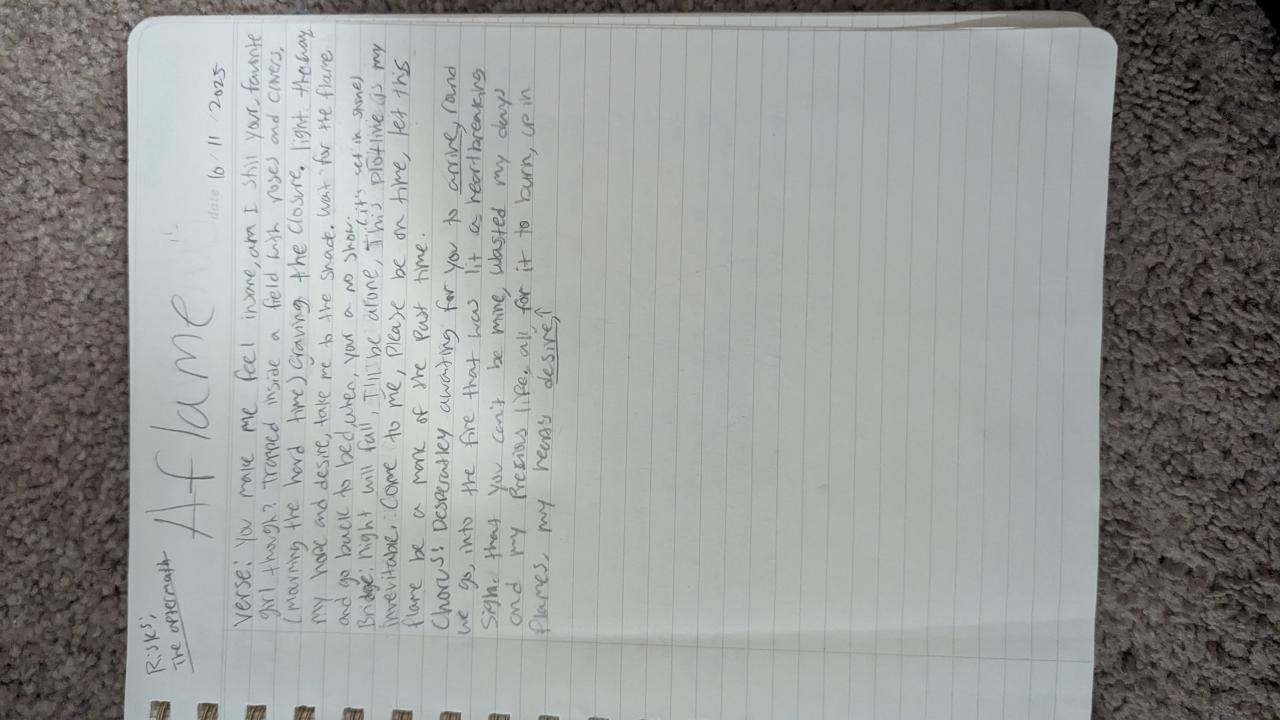 Risks;
The aftermath
Aflame
date 6/11/2025
Verse: You make me feel insane, am I still your favorite
girl though? Trapped inside a field with roses and clovers,
(mourning the hard time) Craving the closure. light the way
my hope and desire, take me to the shade. Wait for the flame
and go back to bed, when, your a no show.
Bridge: Night will fall, I'll be alone, (it's set in stone)
This plotline is my
inevitable: Come to me, Please be on time, let this
flame be a mark of the past time.
Chorus: Desperatley awaiting for you to arrive, round
we go, into the fire that was lit a heartbreaking
sight. that you can't be mine, wasted my days
and my Precious life, all for it to burn, up in
flames, my hearts desire,